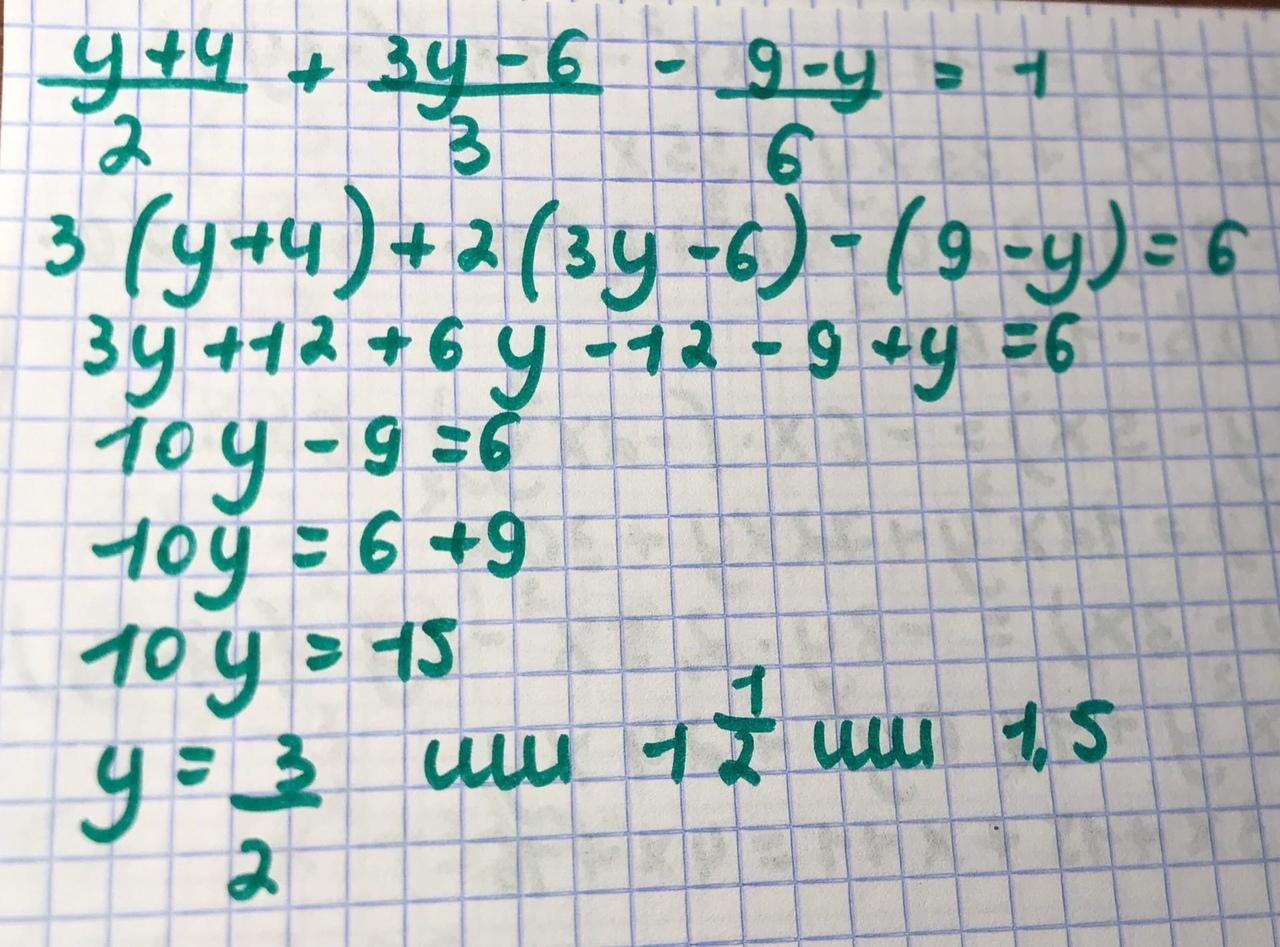 (y+4)/2 + (3y-6)/3 - (9-y)/6 = 1
3(y+4)+2(3y-6)-(9-y)=6
3y+12+6y-12-9+y=6
10y-9=6
10y=6+9
10y=15
y=3/2 или 1 1/2 или 1,5